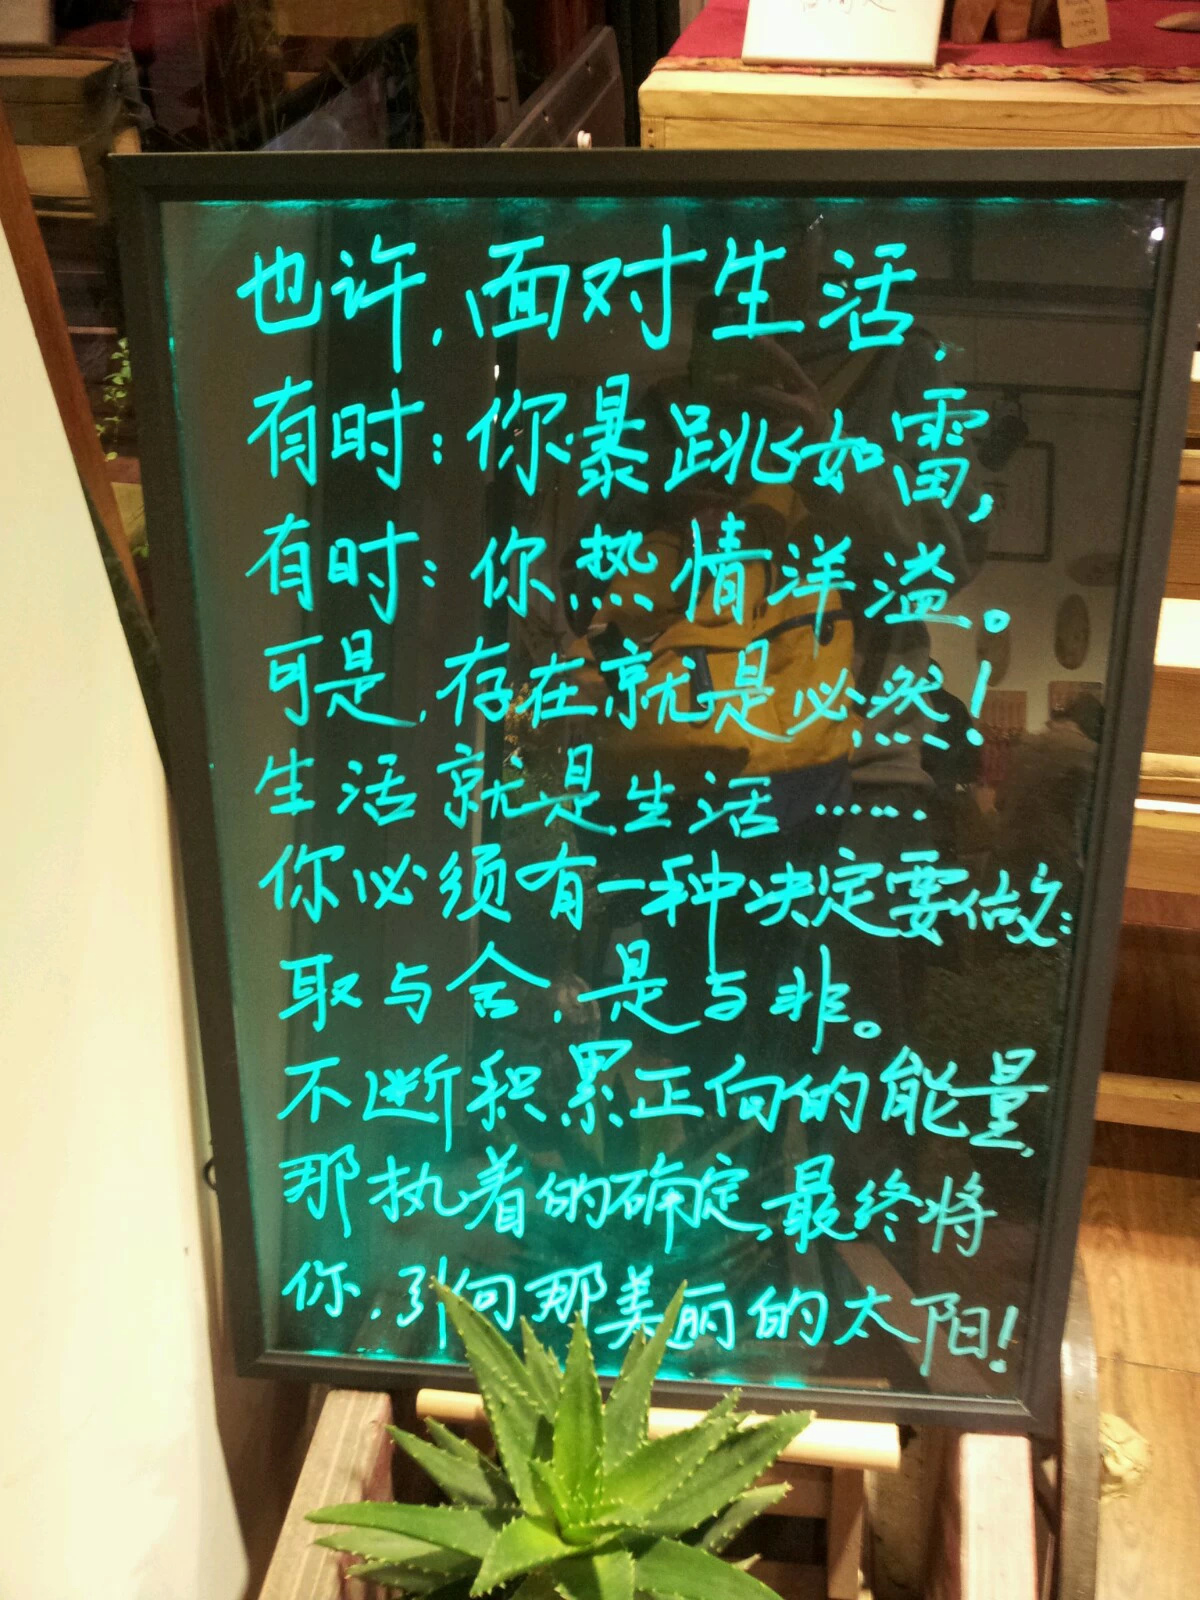 也许，面对生活，
有时：你暴跳如雷，
有时：你热情洋溢。
可是，存在就是必然！
生活就是生活……
你必须有一种决定要做：
取与舍，是与非。
不断积累正向的能量，
那执着的确定，最终将
你，引向那美丽的太阳！